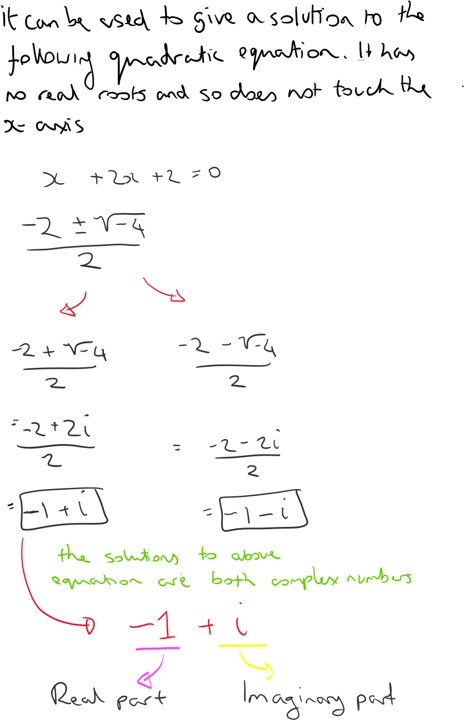 it can be used to give a solution to the
following quadratic equation. It has
no real roots and so does not touch the
x-axis
x +2x+2=0
-2 ± √-4
2
-2 + √-4 -2 - √-4
2 2
= -2+2i = -2-2i
2 2
= -1 + i = -1 - i
the solutions to above
equation are both complex numbers
-1 + i
Real part Imaginary part